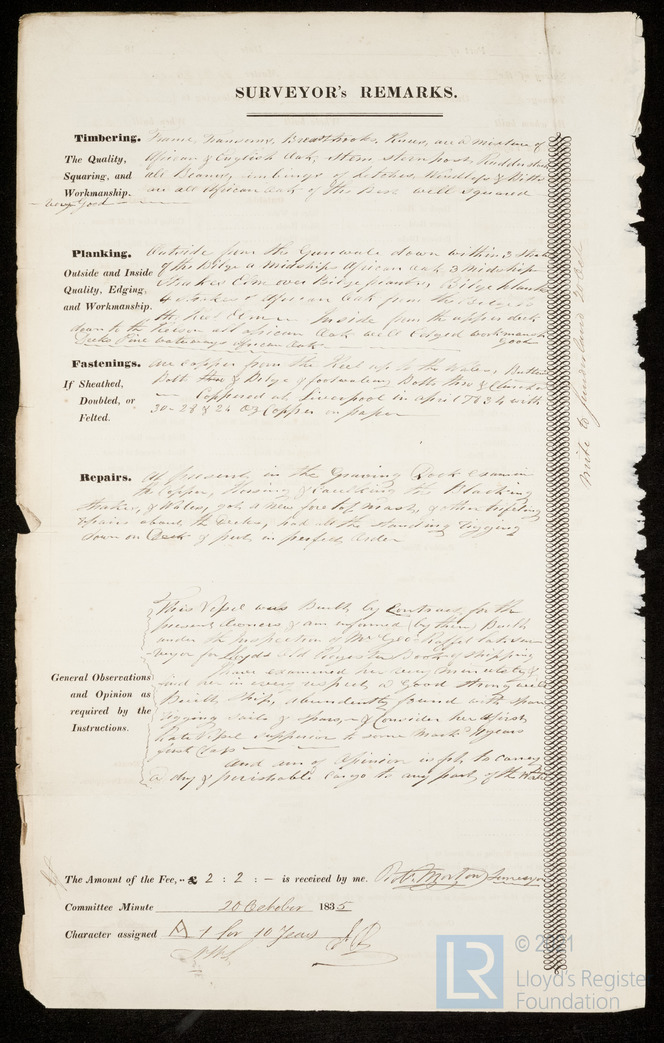 SURVEYOR's REMARKS.
Timbering.
The Quality,
Squaring, and
Workmanship.
Frame, Transoms, Breasthooks, Knees, are a mixture of
African & English Oak, Stem sternpost, Rudder
all Beams, of Hatches, Windlass & Bitts
are all African Oak of the Best well squared
very good
Planking.
Outside and Inside
Quality, Edging,
and Workmanship.
Outside from the Gunwale down within 3
of the Bilge a midships African Oak 3 midship
Strakes Elm over Bilge planks, Bilge planks
4 strakes of African Oak from the Bilge to
the Keel Elm Inside from the upper deck
down to the Kelson all african Oak well Edged workmansh
Decks Pine waterways African Oak good
Fastenings.
If Sheathed,
Doubled, or
Felted.
are Copper from the Keel up to the Wales, Butt
Bolt thro & Bilge & footwaling Bolts thro &
Coppered at Liverpool in april 1834 with
30-28 & 24 Oz Copper on paper
Repairs.
At present in the Graving Dock Examin
the Copper, Horsing & Caulking the Blacking
strakes, & Wales, got a new foretopmast, & other trifling
repairs about the Decks, had all the standing rigging
down on Deck & put in perfect order
write to Sunderland 20 Oct
General Observations
and Opinion as
required by the
Instructions.
This Vessel was Built by Contract for the
present owners & am informed (by them) Built
under the Inspection of Mr Geo Raffel late Sur-
veyor for Lloyds Old Register Book of Shipping
have examined her very minutely &
find her in every respect a Good strong well
Built Ship, abundently found with spare
rigging sails & spars, & Consider her a first
Rate Vessel supperior to some mark'd years
first Class
and um of Opinion is fit to carry
a dry & perishable Cargo to any part of the World
The Amount of the Fee, £ 2 : 2 : - is received by me. Morton Surveyor
Committee Minute 20 October 1835
Character assigned A 1 for 10 Years
© 2021
LR
Lloyd's Register
Foundation